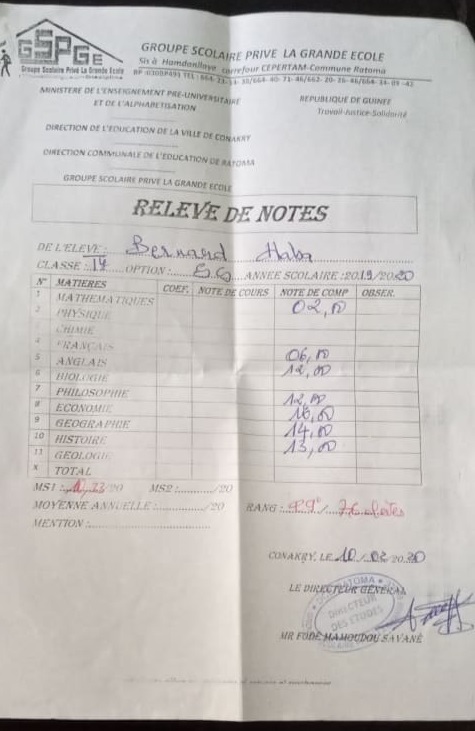 GSPGE
Groupe Scolaire Privé La Grande Ecole
GROUPE SCOLAIRE PRIVE LA GRANDE ECOLE
Sis à Hamdanllaye carrefour CEPERTAM-Commune Ratoma
MINISTERE DE L'ENSEIGNEMENT PRE-UNIVERSITAIRE
ET DE L'ALPHABETISATION
REPUBLIQUE DE GUINEE
Travail-Justice-Solidarité
DIRECTION DE L'EDUCATION DE LA VILLE DE CONAKRY
DIRECTION COMMUNALE DE L'EDUCATION DE RATOMA
GROUPE SCOLAIRE PRIVE LA GRANDE ECOLE
RELEVE DE NOTES
DE L'ELEVE : Bernard Haba
CLASSE : OPTION : SS ANNEE SCOLAIRE :2019/2020
N° MATIERES COEF. NOTE DE COURS NOTE DE COMP OBSER.
1 MATHEMATIQUES 02,00
2 PHYSIQUE
CHIMIE
4 FRANÇAIS
5 ANGLAIS 06,00
6 BIOLOGIE 12,00
7 PHILOSOPHIE 12,00
8 ECONOMIE 16,00
9 GEOGRAPHIE 14,00
10 HISTOIRE 13,00
11 GEOLOGIE
X TOTAL
MS1 : /20 MS2 : /20
MOYENNE ANNUELLE : /20 RANG :
MENTION :
CONAKRY, LE 10/02/2020
LE DIRECTEUR GENERAL
DIRECTEUR
DES ETUDES
MR FODE MAMOUDOU SAVANE